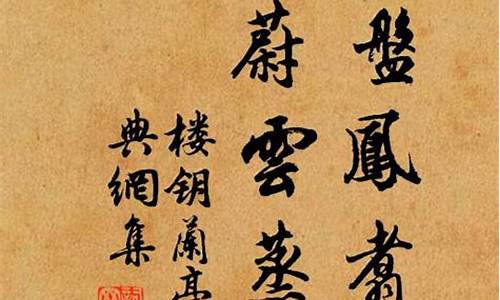 盤鳳翥
蔚雲蒸
楼钥蘭亭
典網集